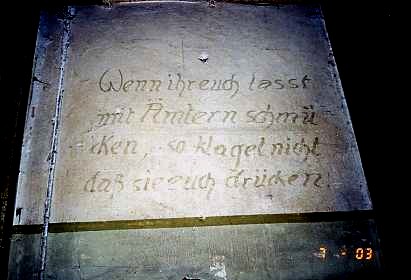 Wenn ihr euch lasst
mit Ämtern schmü
cken, so klaget nicht
daß sie euch drücken.
03